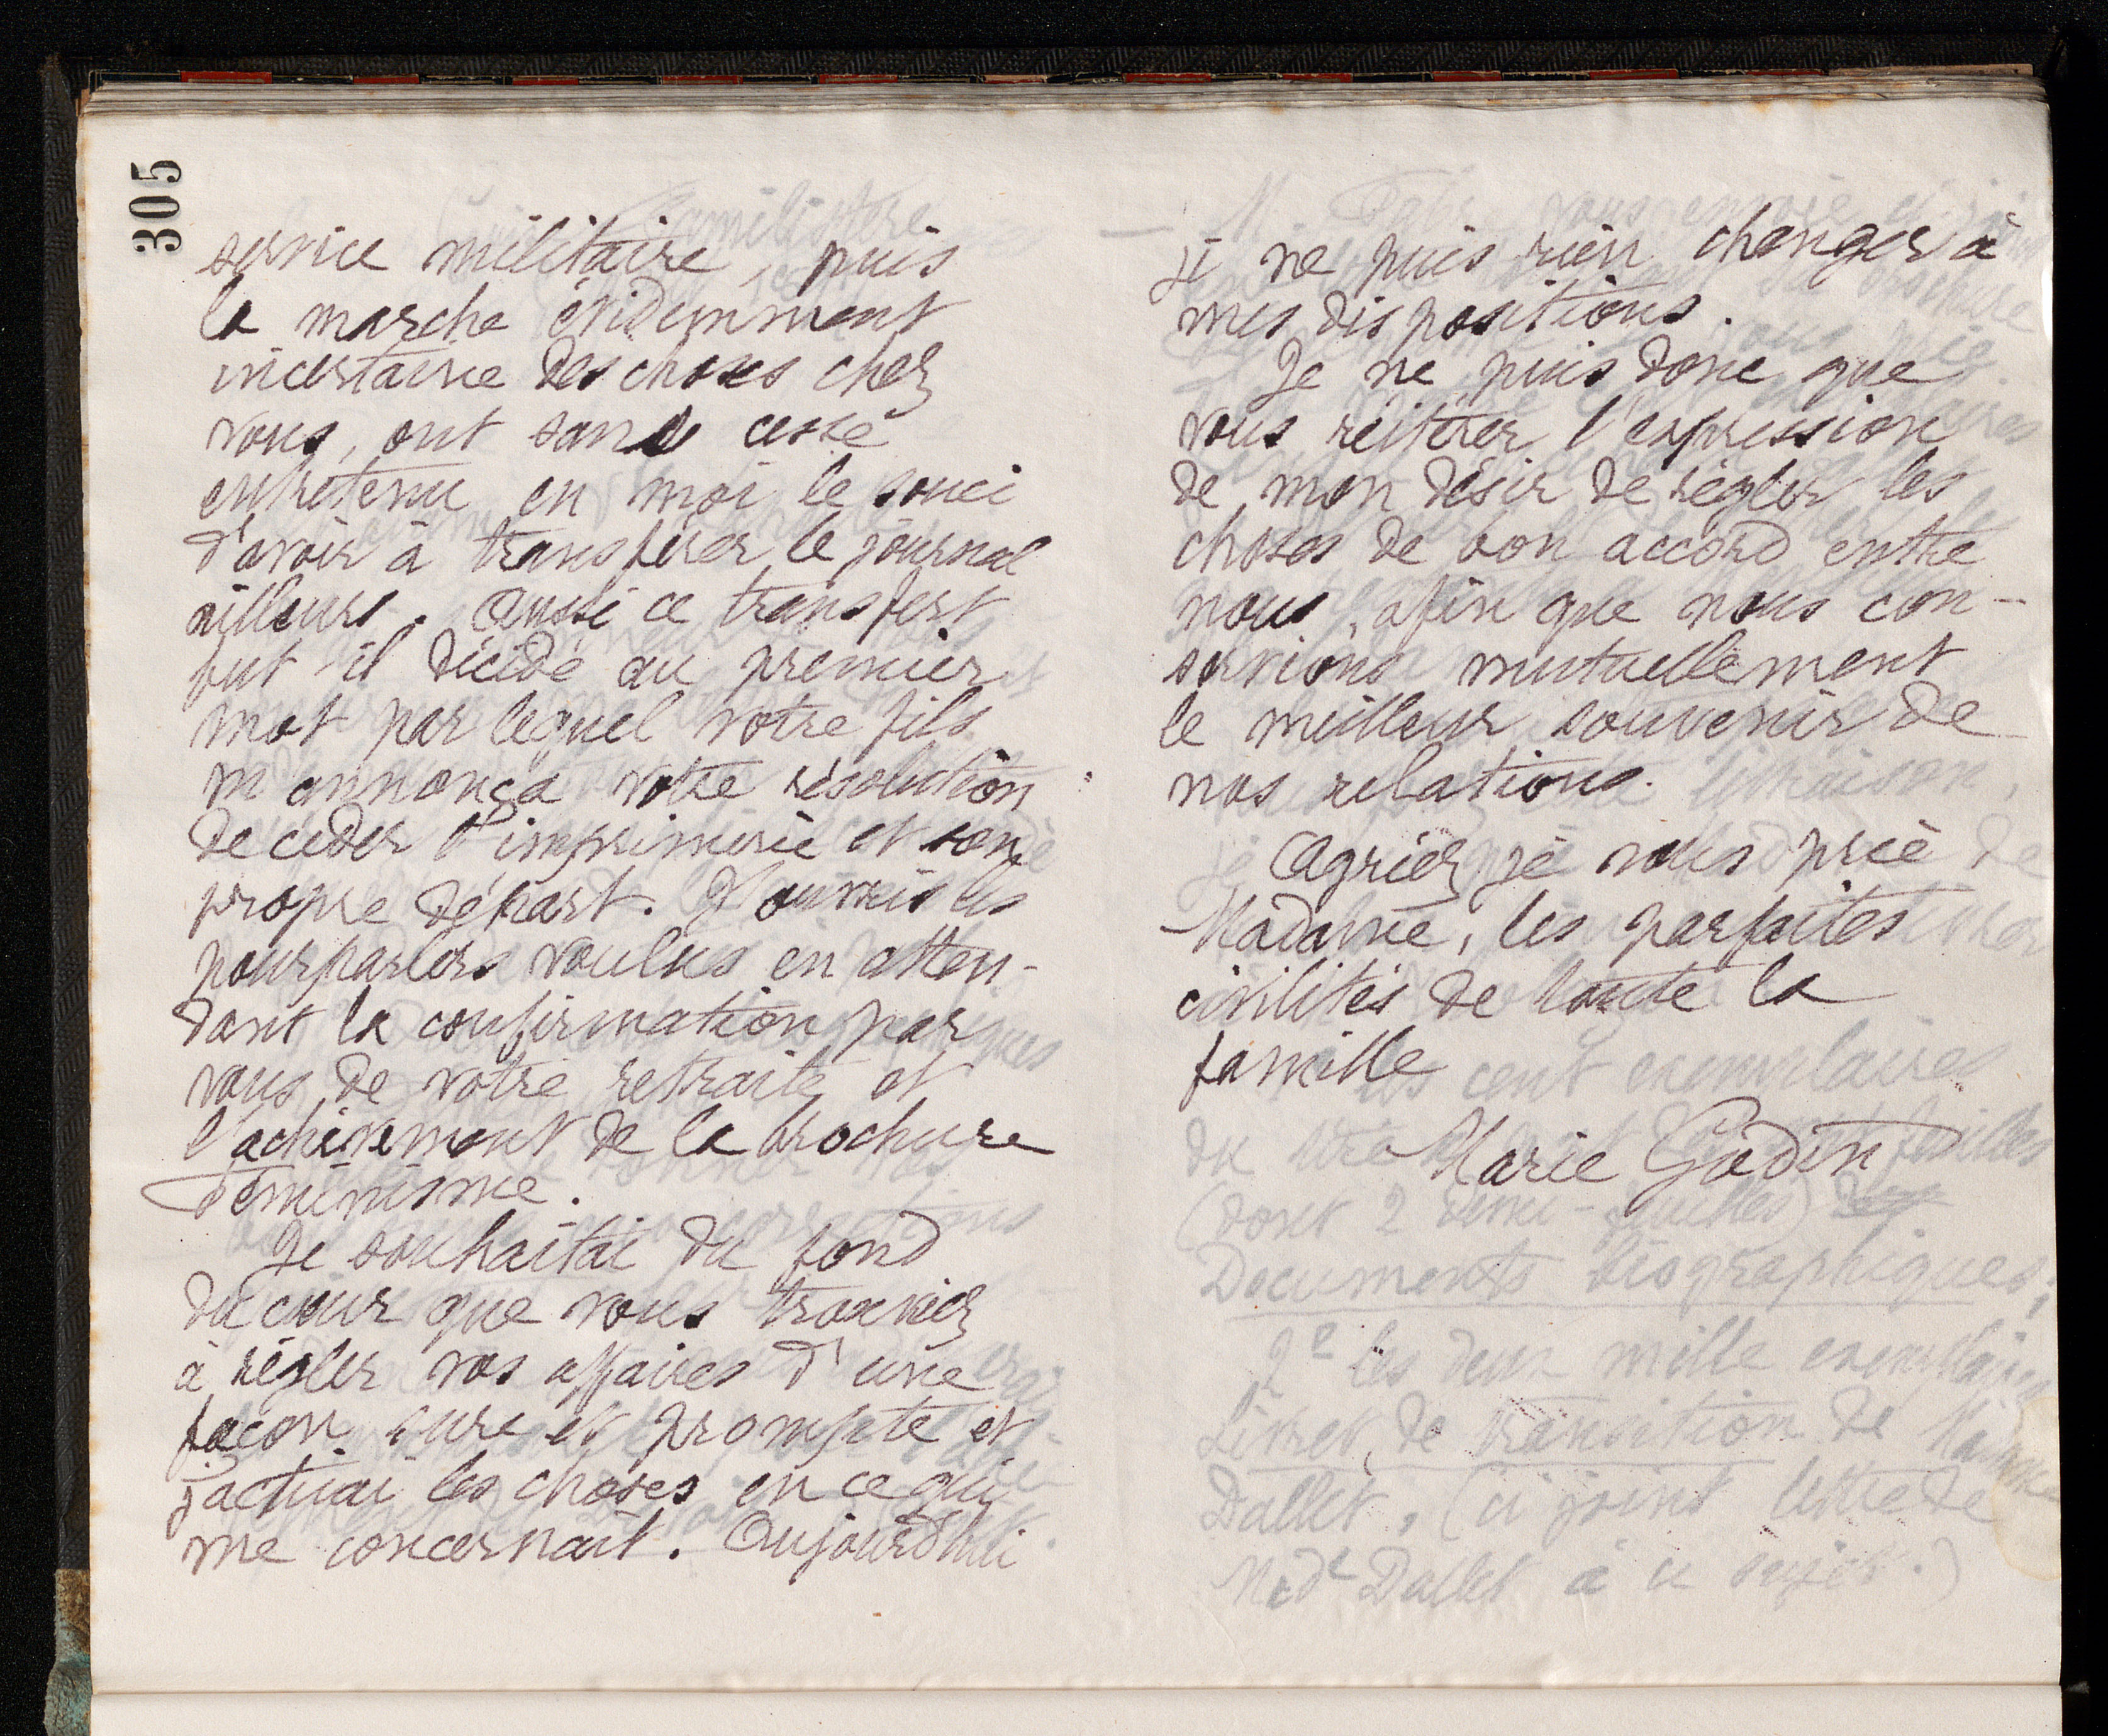 305
service militaire, puis
la marche évidemment
incertaine des choses chez
vous, ont sans cesse
entretenu en moi le souci
d'avoir à transférer le journal
ailleurs. Aussi ce transfert
fut-il décidé au premier
mot par lequel votre fils
m'annonça votre résolution
de céder l'imprimerie et son
propre départ. J'ouvris les
pourparlers voulus en atten-
dant la confirmation par
vous de votre retraite et
l'achèvement de la brochure
Féminisme.
Je souhaitai du fond
du cœur que vous trouviez
à régler vos affaires d'une
façon sure et prompte et
j'activai les choses en ce qui
me concernait. Aujourd'hui
je ne puis rien changer à
mes dispositions.
Je ne puis donc que
vous réitérer l'expression
de mon désir de régler les
choses de bon accord entre
nous, afin que nous con-
servions mutuellement
le meilleur souvenir de
nos relations.
Agréez je vous prie
Madame, les parfaites
civilités de toute la
famille
Marie Godin
les cent exemplaires
(dont 2 demi-feuilles)
Documents biographiques;
2e les deux mille exemplaires
Livret de transition de Madame
Dallet. (ci joint lettre de
Mde Dallet à ce sujet.)